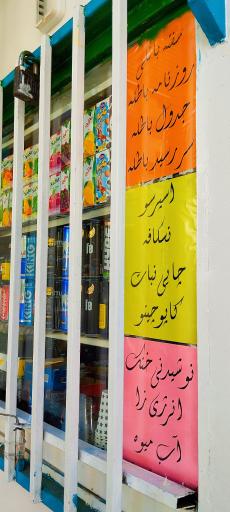 سفته باطله
روزنامه باطله
جدول باطله
سررسید باطله
اسپرسو
نسکافه
چایی نبات
کاپوچینو
نوشیدنی خنک
انرژی زا
آب میوه